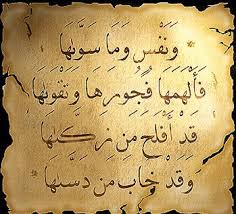 وَنَفْسٍ وَمَا سَوَّىٰهَا
فَأَلْهَمَهَا فُجُورَهَا وَتَقْوَىٰهَا
قَدْ أَفْلَحَ مَن زَكَّىٰهَا
وَقَدْ خَابَ مَن دَسَّىٰهَا